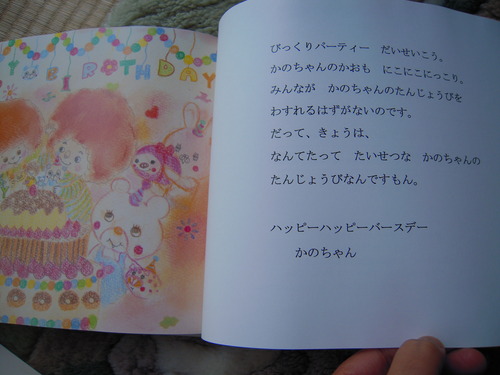 Y BIRTHDAY
びっくりパーティー　だいせいこう。
かのちゃんのかおも　にこにこにっこり。
みんなが　かのちゃんのたんじょうびを
わすれるはずがないのです。
だって、きょうは、
なんてたって　たいせつな　かのちゃんの
たんじょうびなんですもん。
ハッピーハッピーバースデー
かのちゃん